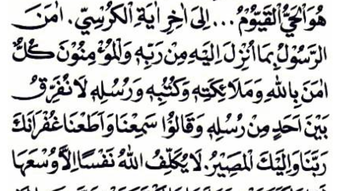 هُوَ الْحَيُّ الْقَيُّومُ... اِلَى اٰخِرِ اٰيَةِ الْكُرْسِيِّ. اٰمَنَ
الرَّسُولُ بِمَا اُنْزِلَ اِلَيْهِ مِنْ رَبِّهٖ وَالْمُؤْمِنُونَ كُلٌّ
اٰمَنَ بِاللّٰهِ وَمَلَائِكَتِهٖ وَكُتُبِهٖ وَرُسُلِهٖ لَا نُفَرِّقُ
بَيْنَ اَحَدٍ مِنْ رُسُلِهٖ وَقَالُوا سَمِعْنَا وَاَطَعْنَا غُفْرَانَكَ
رَبَّنَا وَاِلَيْكَ الْمَصِيرُ. لَا يُكَلِّفُ اللّٰهُ نَفْسًا اِلَّا وُسْعَهَا